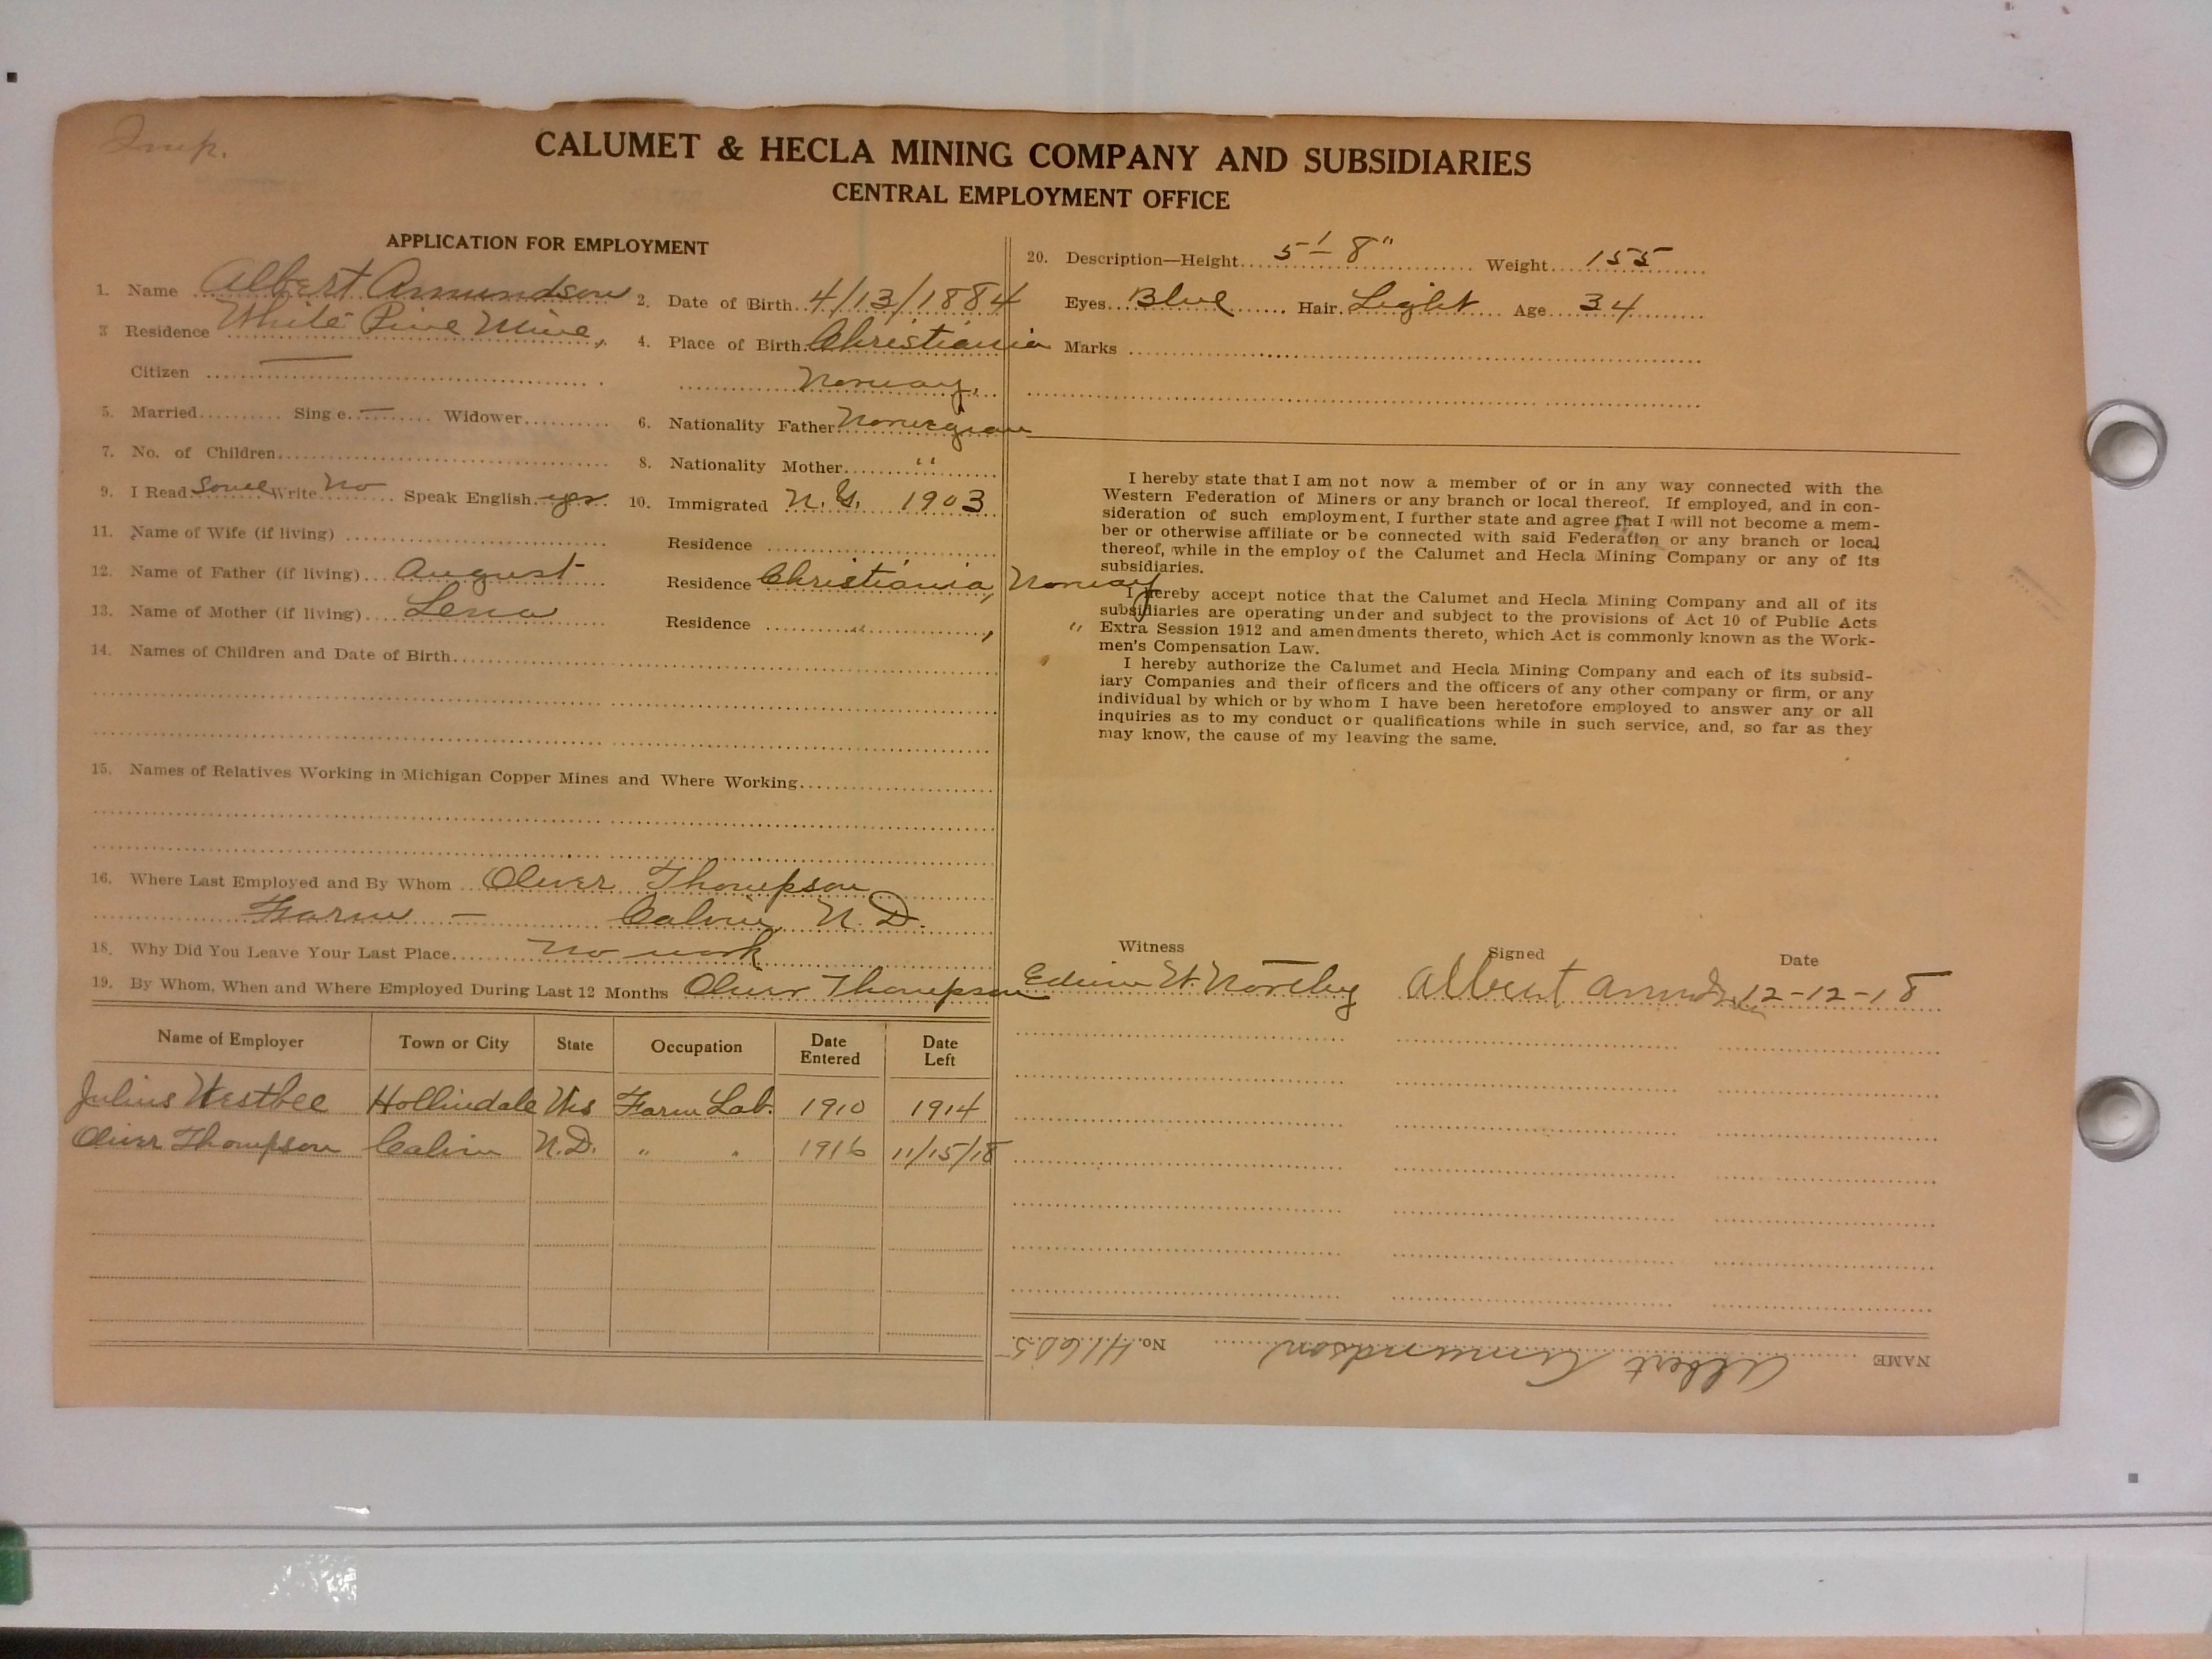 Imp.
CALUMET & HECLA MINING COMPANY AND SUBSIDIARIES
CENTRAL EMPLOYMENT OFFICE
APPLICATION FOR EMPLOYMENT
1. Name Albert Amundson 2. Date of Birth 4/13/1884
3 Residence White Pine Mine, 4. Place of Birth Christiania
Citizen — Norway.
5. Married Sing e. — Widower 6. Nationality Father Norwegian
7. No. of Children 8. Nationality Mother "
9. I Read Some Write No Speak English yes 10. Immigrated N.Y. 1903
11. Name of Wife (if living) Residence
12. Name of Father (if living) August Residence Christiania, Norway
13. Name of Mother (if living) Lena Residence " , "
14. Names of Children and Date of Birth
15. Names of Relatives Working in Michigan Copper Mines and Where Working
16. Where Last Employed and By Whom Oliver Thompson
Farm — Calvin, N.D.
18. Why Did You Leave Your Last Place No work
19. By Whom, When and Where Employed During Last 12 Months Oliver Thompson
Name of Employer Town or City State Occupation Date Entered Date Left
Julius Westbee Hollindale Wis Farm Lab. 1910 1914
Oliver Thompson Calvin N.D. " " 1916 11/15/18
20. Description—Height 5' — 8" Weight 155
Eyes Blue Hair Light Age 34
Marks
I hereby state that I am not now a member of or in any way connected with the
Western Federation of Miners or any branch or local thereof. If employed, and in con-
sideration of such employment, I further state and agree that I will not become a mem-
ber or otherwise affiliate or be connected with said Federation or any branch or local
thereof, while in the employ of the Calumet and Hecla Mining Company or any of its
subsidiaries.
I hereby accept notice that the Calumet and Hecla Mining Company and all of its
subsidiaries are operating under and subject to the provisions of Act 10 of Public Acts
Extra Session 1912 and amendments thereto, which Act is commonly known as the Work-
men's Compensation Law.
I hereby authorize the Calumet and Hecla Mining Company and each of its subsid-
iary Companies and their officers and the officers of any other company or firm, or any
individual by which or by whom I have been heretofore employed to answer any or all
inquiries as to my conduct or qualifications while in such service, and, so far as they
may know, the cause of my leaving the same.
Witness Signed Date
Edwin W. Albert 12-12-18
NAME Albert Amundson No. 41605